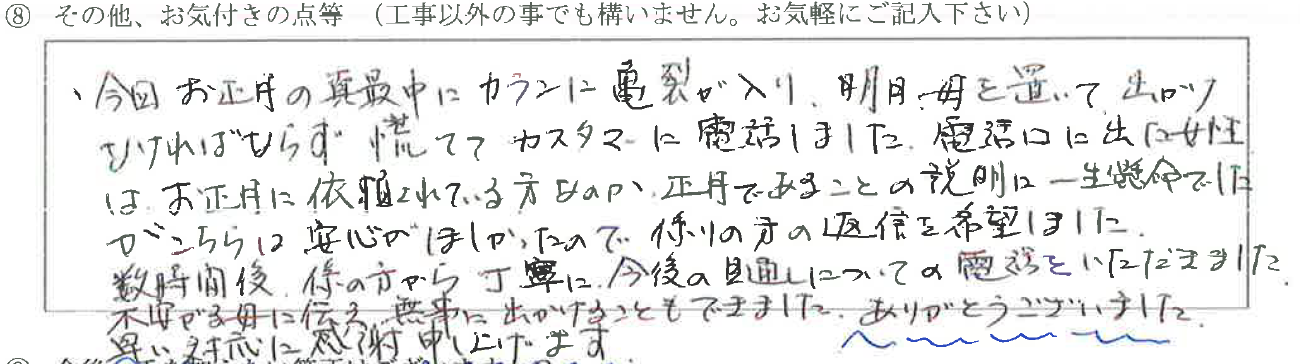 ⑧ その他、お気付きの点等 (工事以外の事でも構いません。お気軽にご記入下さい)
、今回お正月の真最中にカランに亀裂が入り、明日、母を置いて出かけ
なければならず慌ててカスタマーに電話しました。電話口に出た女性
は、お正月に依頼されている方なのか、正月であることの説明に一生懸命でした
がこちらは安心がほしかったので係りの方の返信を希望しました。
数時間後、係の方から丁寧に今後の見通しについての電話をいただきました。
不安がる母に伝え無事に出かけることもできました。ありがとうございました。
早い対応に感謝申し上げます